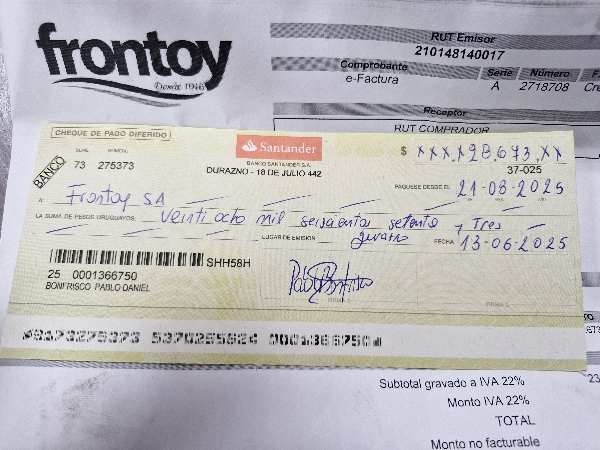 frontoy
Desde 1946
RUT Emisor
210148140017
Comprobante Serie Número
e-Factura A 2718708
Receptor
RUT COMPRADOR
CHEQUE DE PAGO DIFERIDO
BANCO
SERIE NÚMERO
73 275373
Santander
BANCO SANTANDER S.A.
DURAZNO - 18 DE JULIO 442
$ xxx.x28.673.xx
37-025
PAGUESE DESDE EL 21-08-2025
A: Frontoy SA
LA SUMA DE PESOS URUGUAYOS: Veintiocho mil seiscientos setenta y Tres
LUGAR DE EMISION FECHA 13-06-2025
SHH58H
25 0001366750
BONFRISCO PABLO DANIEL
FIRMA 1
Subtotal gravado a IVA 22%
Monto IVA 22%
TOTAL
Monto no facturable